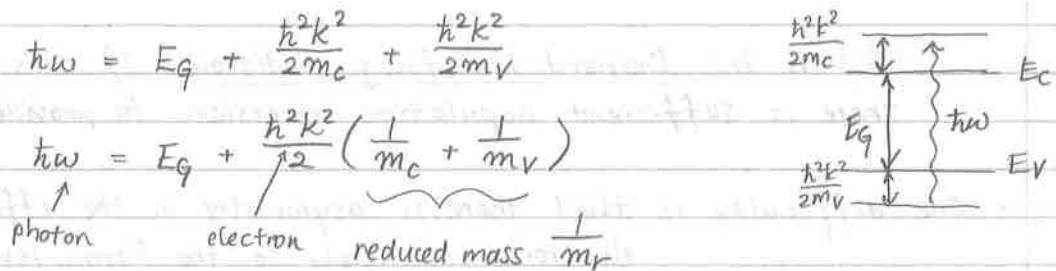 ħω = E_G + ħ²k²/2m_C + ħ²k²/2m_V
ħω = E_G + ħ²k²/2 (1/m_C + 1/m_V)
photon
electron
reduced mass 1/m_r
ħ²k²/2m_C
E_C
E_G
ħω
E_V
ħ²k²/2m_V